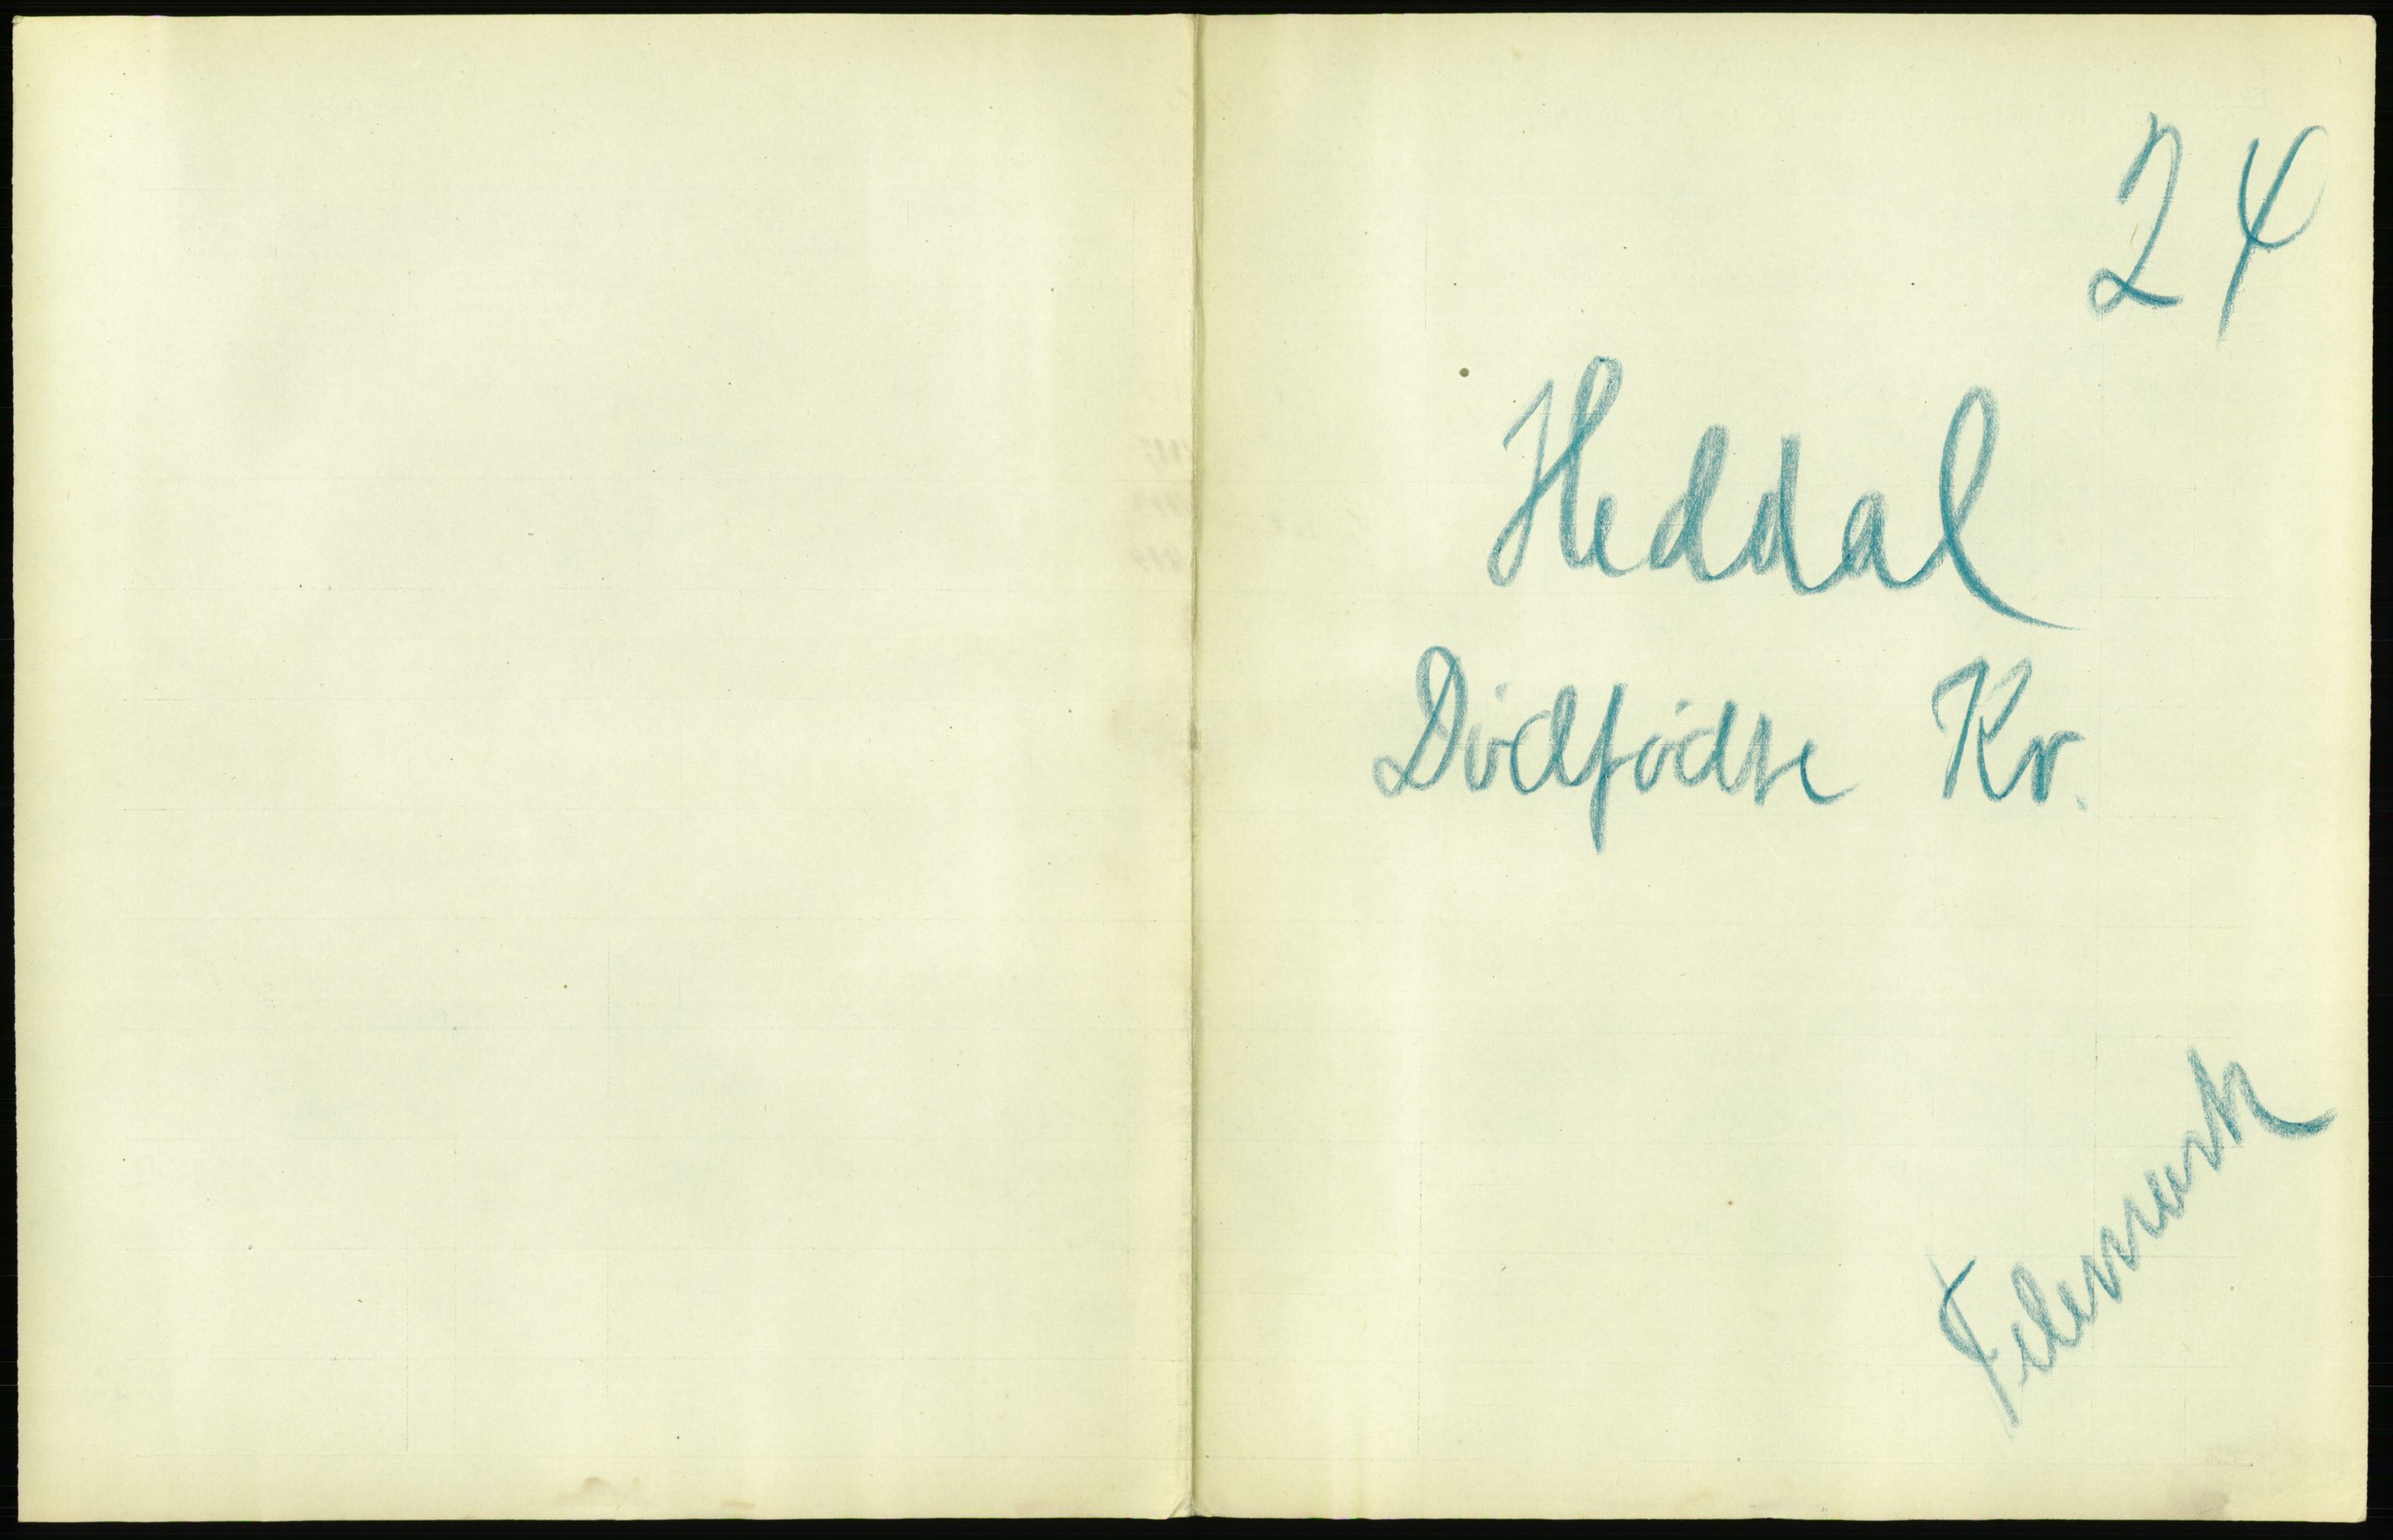 24
Heddal
Dødfødte Kv.
Telemark